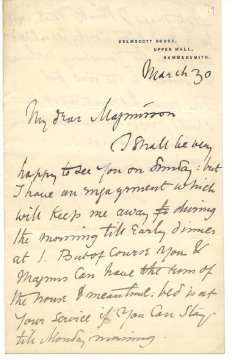 74
KELMSCOTT HOUSE,
UPPER MALL,
HAMMERSMITH.
March 30
My dear Magnússon
I shall be very
happy to see you on Sunday: but
I have an engagement which
will keep me away during
the morning till early dinner
at 1. But of course you &
Magnus can have the run of
the house meantime: bed is at
your service if you can stay
till Monday morning.